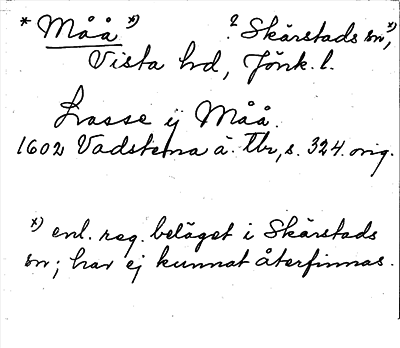 * Måå x)   ? Skärstads sn, x)
Vista hd, Jönk. l.
Lasse ij Måå.
1602 Vadstena ä. Tbr, s. 324. orig.
x) enl. reg. beläget i Skärstads
sn; har ej kunnat återfinnas.